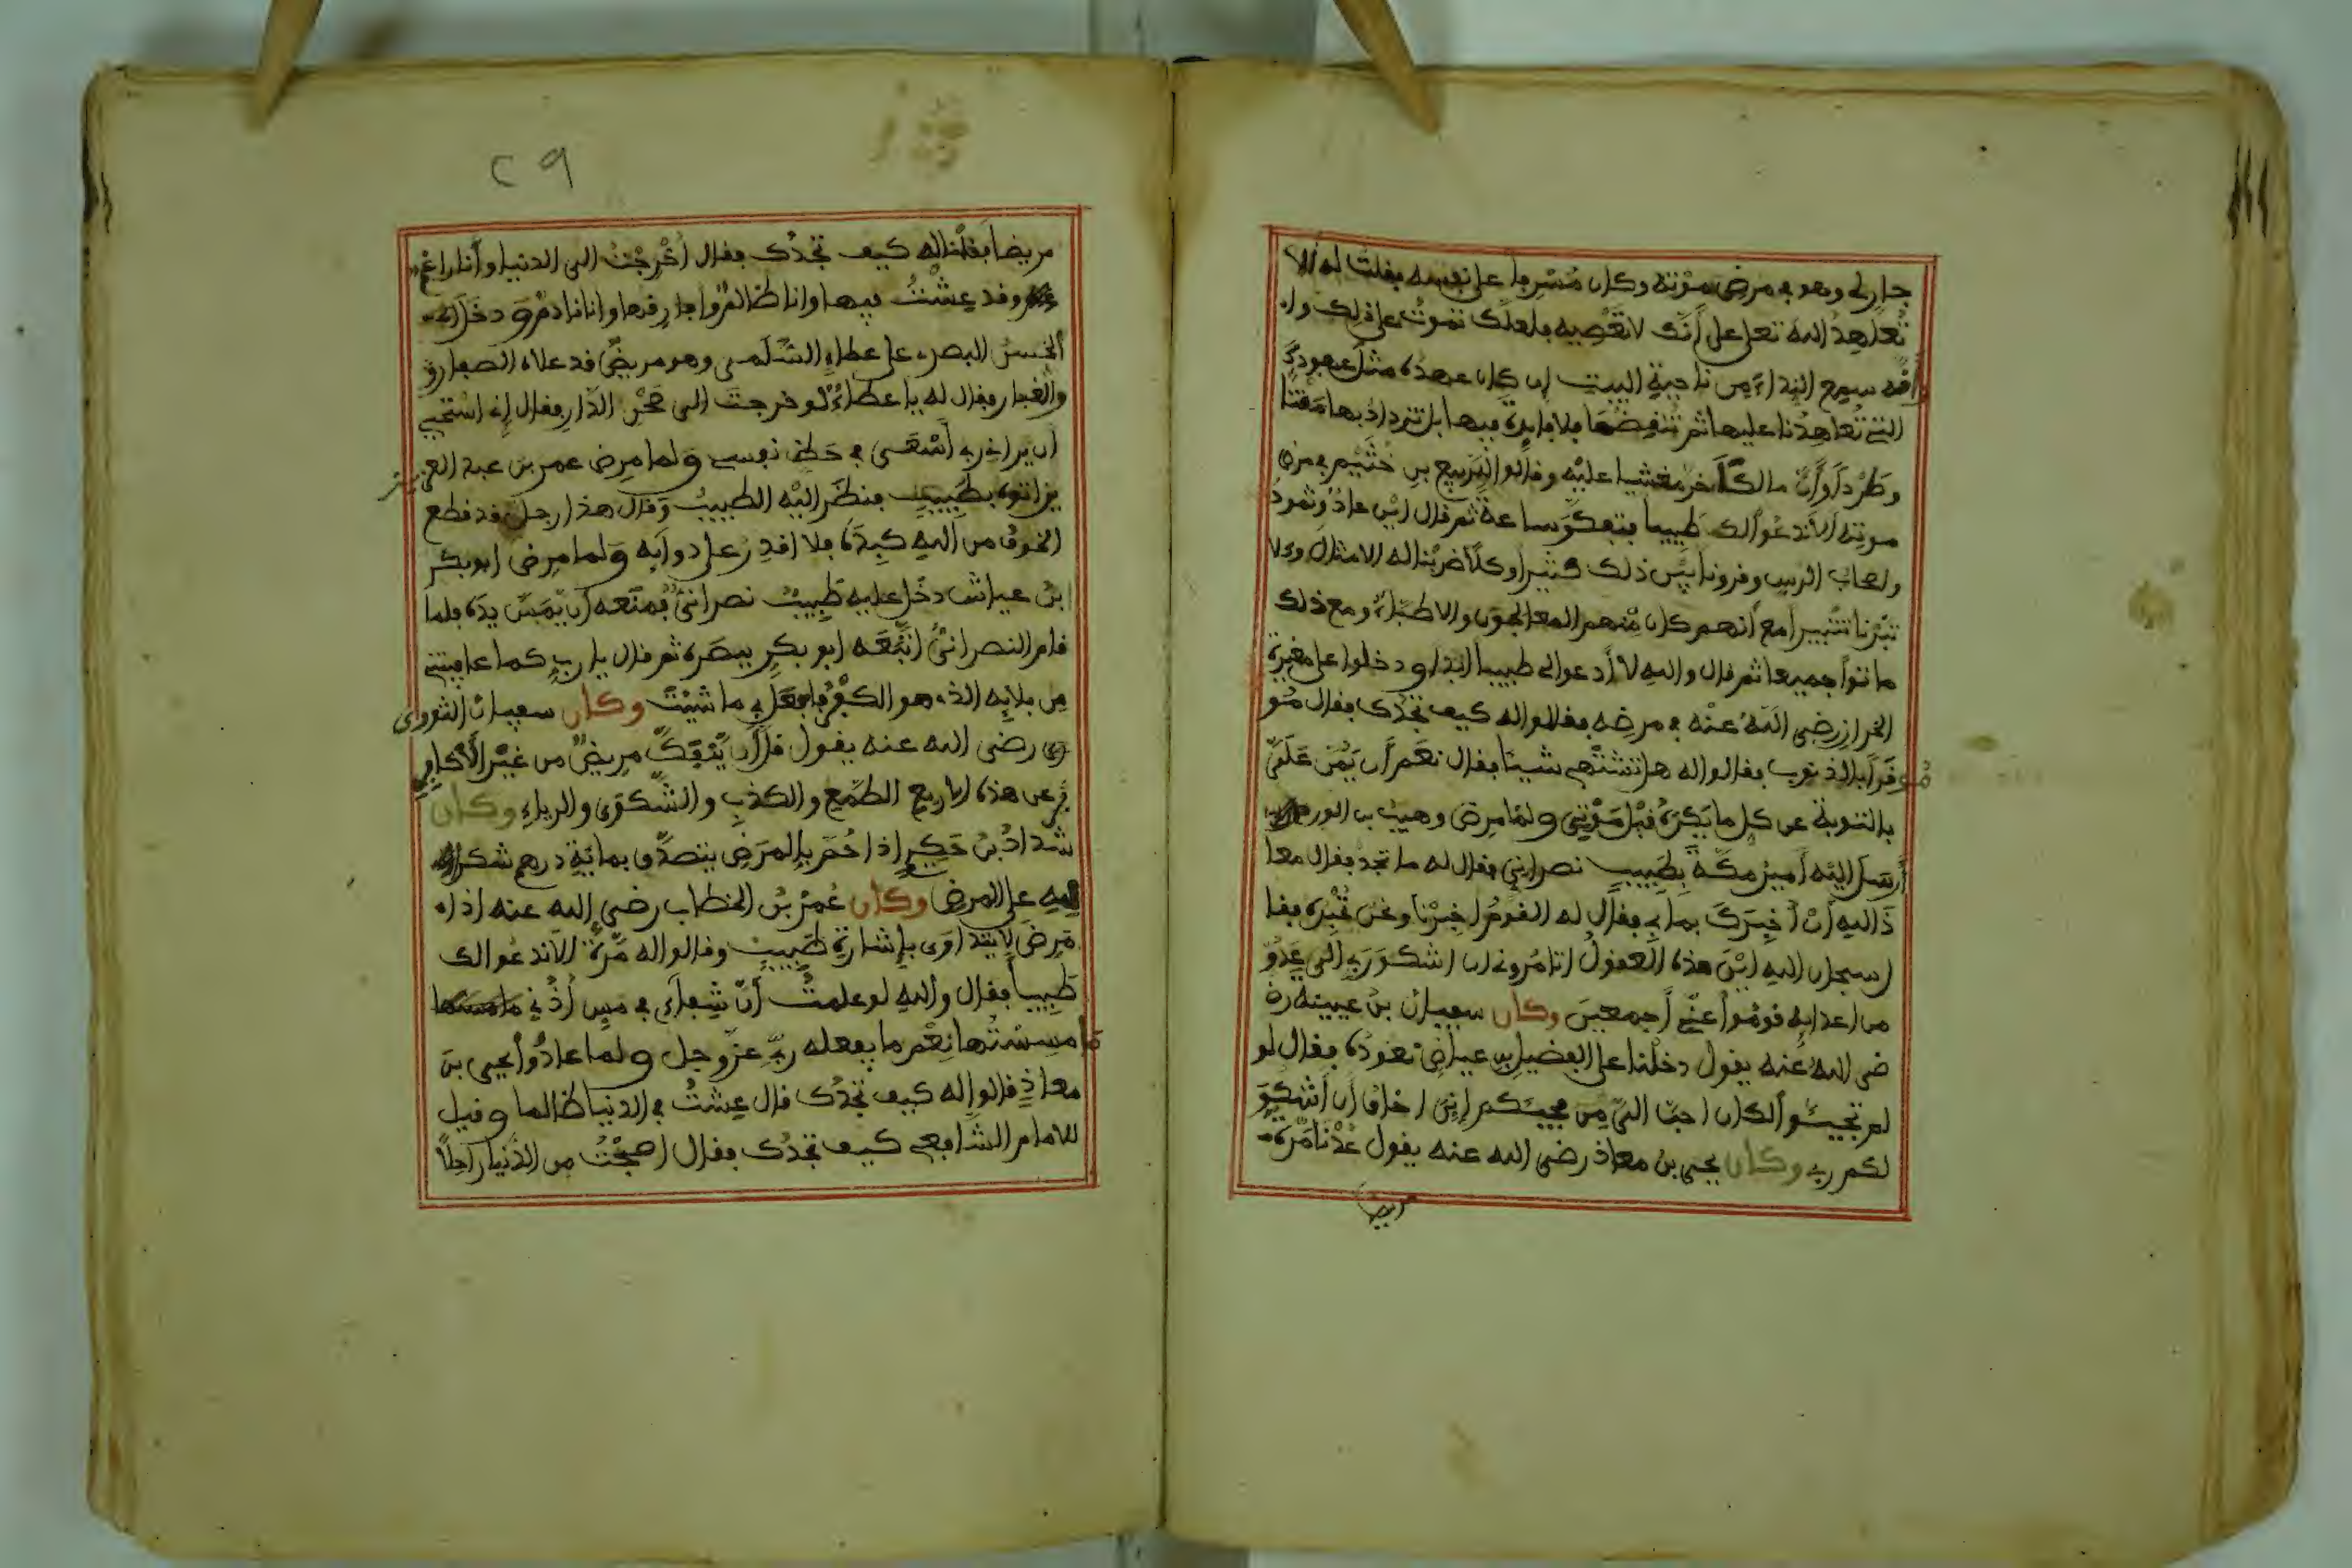 جارلى وهو في مرض موته وكان مسرفا على نفسه فقلت له ألا
تعاهد الله تعلى على أنك لا تعصيه فلعلك تموت على ذلك وا
فه سمع النداء من ناحية البيت إن كان عهدك مثل عهودك
التي تعاهدنا عليها ثم تنقضها فلا فايدة فيها بل تزداد بها مقتا
وطردا وأن مالكا خر مغشيا عليه وقالوا للربيع بن خثيم في مرض
موته ألا ندعوا لك طبيبا فتفكر ساعة ثم قال اين عاد وثمود
واصحاب الرس وقرونا بين ذلك كثيرا وكلا ضربنا له الامثال وكلا
تبرنا تتبيرا مع أنهم كان منهم المعالجون والاطباء ومع ذلك
ماتوا جميعا ثم قال والله لا أدعوا لي طبيبا ابدا ودخلوا على مغيرة
الخراز رضى الله عنه في مرضه فقالوا له كيف تجدك فقال مو
موقرا بالذنوب فقالوا له هل تشتهي شيئا فقال نعم أن يمن علي
بالتوبة عن كل ما يكره قبل موتي ولما مرض وهيب بن الورد
أرسل اليه أمير مكة بطبيب نصراني فقال له ما تجد فقال معا
ذ الله أن أخبرك بما بي فقال له القوم اخبرنا ونحن نخبره فقا
ل سبحان الله اين هذه العقول اتامروني ان اشكو ربي الى عدو
من اعدائه قوموا عني أجمعين وكان سفيان بن عيينة ر
ضى الله عنه يقول دخلنا على الفضيل بن عياض نعوده فقال لو
لم تجيئوا لكان احب الي من مجيئكم إني اخاف أن أشكو
لكم ربي وكان يحيى بن معاذ رضى الله عنه يقول عدنا مرة
مريضا
٢٩
مريضا فقلنا له كيف تجدك فقال أخرجت الى الدنيا وأنا راغم
وقد عشت فيها وانا ظالم وافارقها وانا نادم ودخل
الحسن البصري على عطاء السلمى وهو مريض قد علاه الصفار
والغبار فقال له يا عطاء لو خرجت الى صحن الدار فقال إني استحيي
أن يراني ربي أسعى في حظ نفسي ولما مرض عمر بن عبد العز
يز اتوه بطبيب فنظر اليه الطبيب وقال هذا رجل قد قطع
الخوف من الله كبده فلا اقدر على دوائه ولما مرض ابو بكر
بن عياش دخل عليه طبيب نصراني فمنعه أن يمس يده فلما
قام النصراني اتبعه ابو بكر ببصره ثم قال يا رب كما عافيتني
من بلائه الذي هو الكفر فافعل بي ما شئت وكان سفيان الثوري
رضى الله عنه يقول قل أن ينفك مريض من غير الأكابر
عن هذه الاربع الطمع والكذب والشكوى والرياء وكان
شداد بن حكيم إذا حم بالمرض يتصدق بمائة درهم شكرا
لله على المرض وكان عمر بن الخطاب رضى الله عنه اذا
مرض لا يتداوى بإشارة طبيب وقالوا له مرة ألا ندعوا لك
طبيبا فقال والله لو علمت أن شفاءي في مس أذني
ما مسستها نعم ما يفعله ربي عز وجل ولما عادوا يحيى بن
معاذ قالوا له كيف تجدك قال عشت في الدنيا ظالما وقيل
للامام الشافعي كيف تجدك فقال اصبحت من الدنيا راحلا